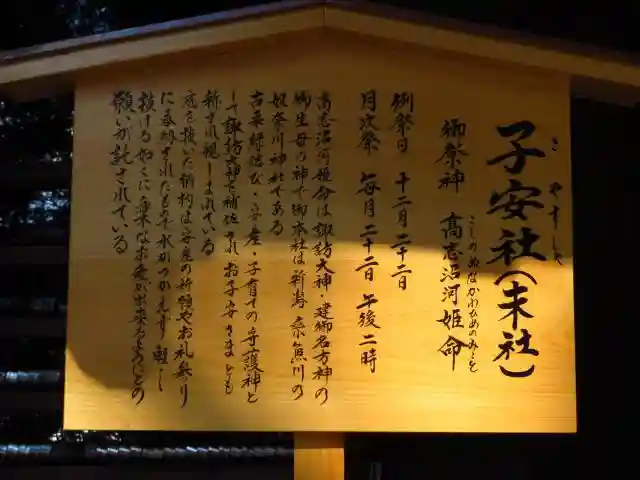 こやすしゃ
子安社(末社)
御祭神 高志沼河姫命
こしのぬなかわひめのみこと
例祭日 十二月二十二日
月次祭 毎月二十二日 午後二時
高志沼河姫命は諏訪大神・建御名方神の
御生母の神で御本社は新潟 糸魚川の
奴奈川神社である
古来縁結び・安産・子育ての守護神と
して諏訪大神を補佐されお子安さまとも
称され親しまれている
底を抜いた柄杓は安産の祈願やお礼参り
に奉納されたもので水がつかえず軽く
抜ける如くに楽なお産が出来るようにとの
願いが託されている